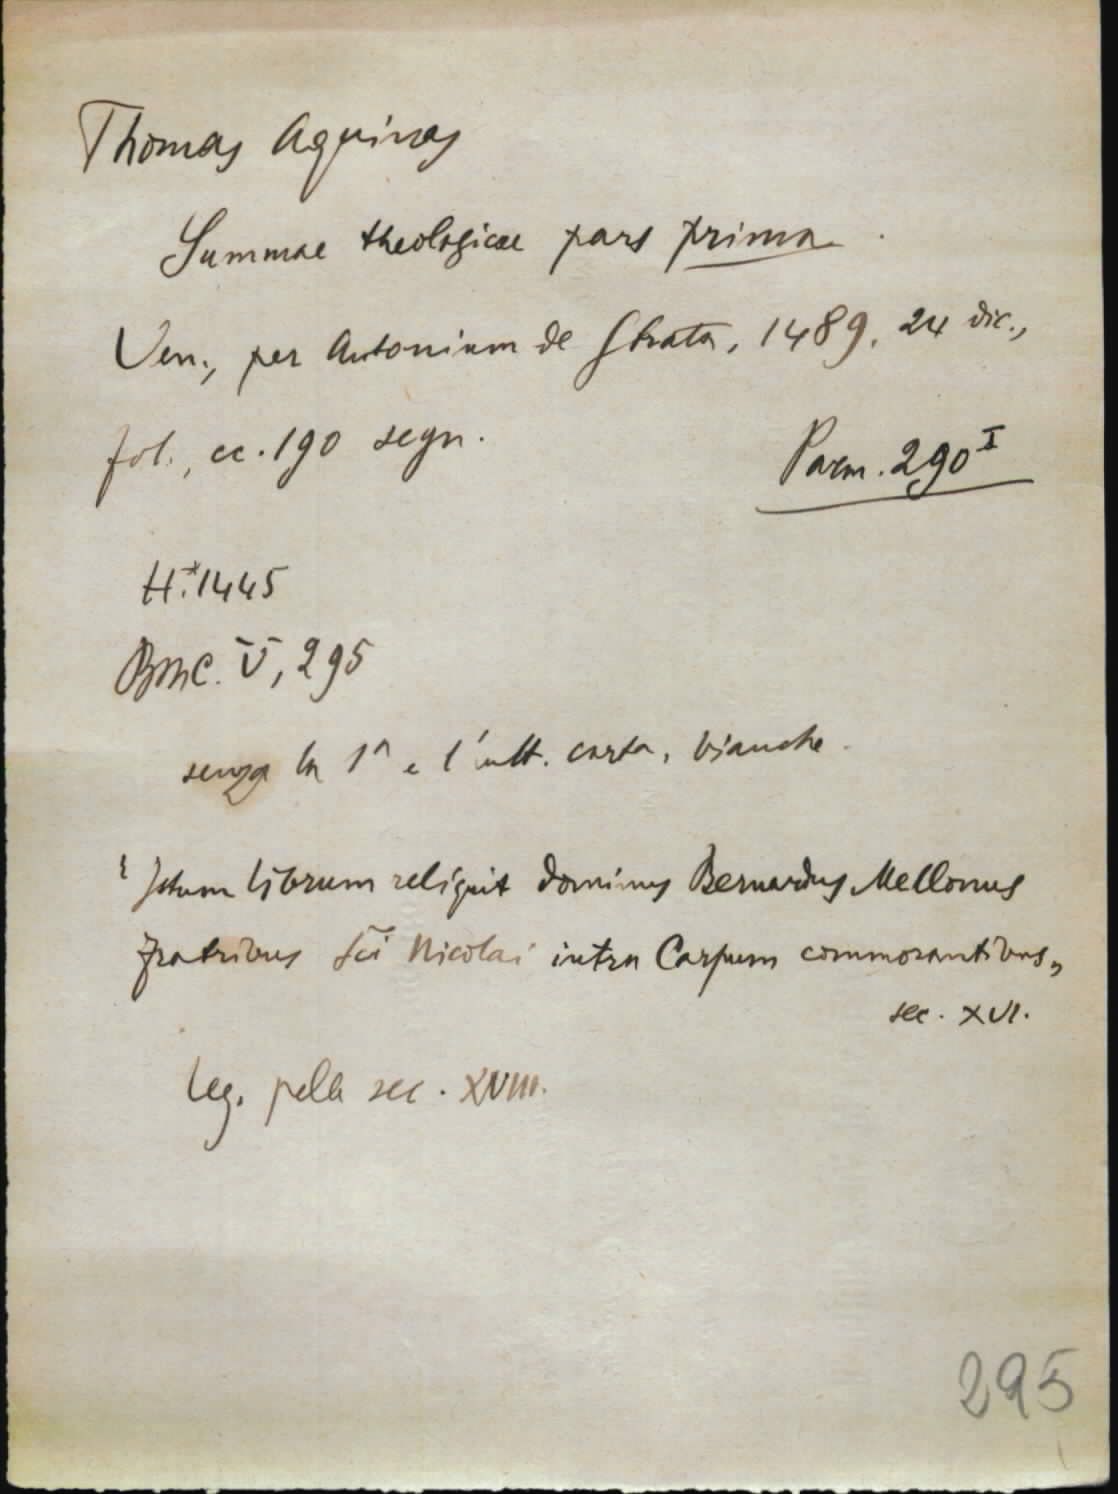 Thomas Aquinas
Summae theologicae pars prima.
Ven., per Antonium de Strata, 1489, 24 dic.,
fol., cc. 190 segn.
Parm. 290 I
H.* 1445
BMC. V, 295
senza la 1ª e l'ult. carta, bianche.
"Istum librum reliquit dominus Bernardus Mellonus
fratribus Sci Nicolai intra Carpum commorantibus„
sec. XVI.
Leg. pelle sec. XVIII.
295